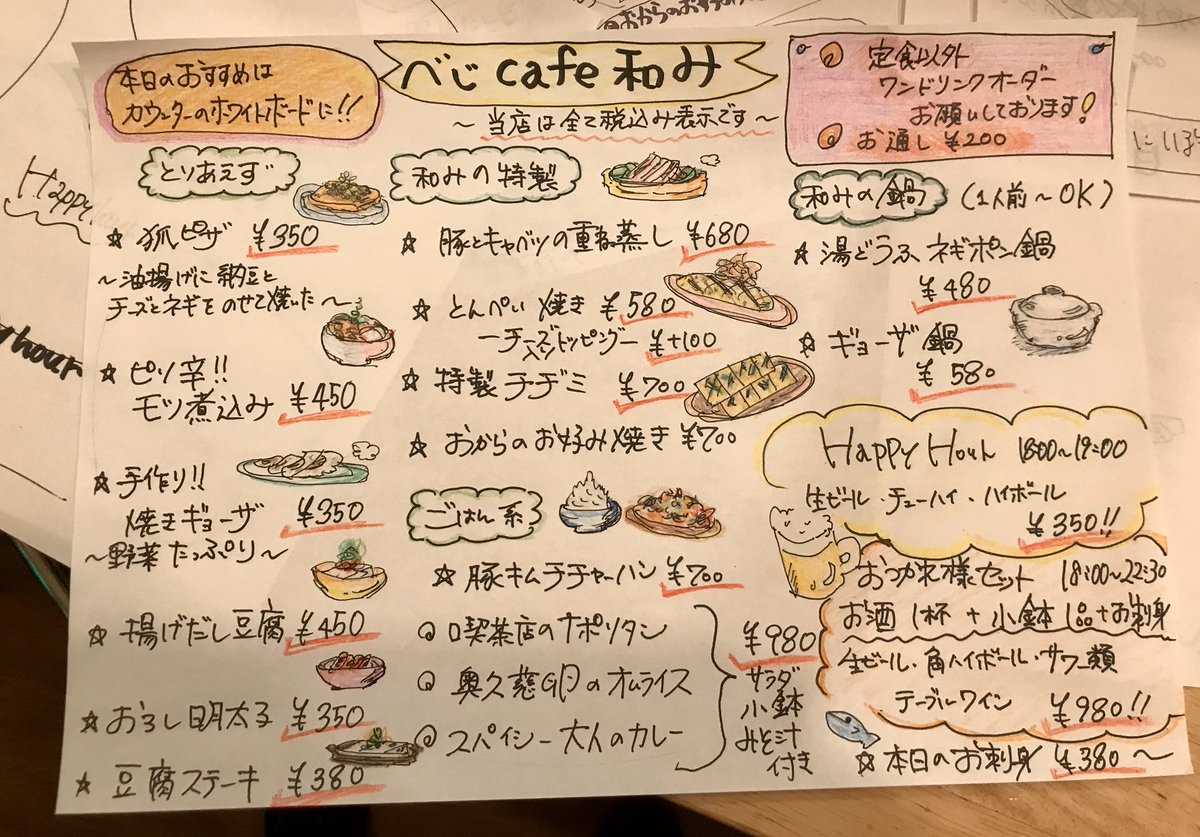 本日のおすすめは
カウンターのホワイトボードに!!
べじcafe和み
~当店は全て税込み表示です~
定食以外
ワンドリンクオーダー
お願いしております!
お通し ¥200
とりあえず
☆狐ピザ ¥350
~油揚げに納豆と
チーズとネギをのせて焼いた~
☆ピリ辛!!
モツ煮込み ¥450
☆手作り!!
焼きギョーザ ¥350
~野菜たっぷり~
☆揚げだし豆腐 ¥450
☆おろし明太子 ¥350
☆豆腐ステーキ ¥380
和みの特製
☆豚とキャベツの重ね蒸し ¥680
☆とんぺい焼き ¥580
ーチーズトッピングー ¥+100
入り
☆特製チヂミ ¥700
☆おからのお好み焼き ¥700
ごはん系
☆豚キムチチャーハン ¥700
喫茶店のナポリタン
奥久慈卵のオムライス
スパイシー大人のカレー
¥980
サラダ
小鉢
みそ汁
付き
和みの鍋 (1人前~OK)
☆湯どうふ、ネギポン鍋
¥480
☆ギョーザ鍋
¥580
Happy Hour 18:00~19:00
生ビール・チューハイ・ハイボール
¥350!!
おつかれ様セット 18:00~22:30
お酒1杯+小鉢1品+お刺身
生ビール・角ハイボール・サワー類
テーブルワイン ¥980!!
☆本日のお刺身 ¥380~
Happy
hour